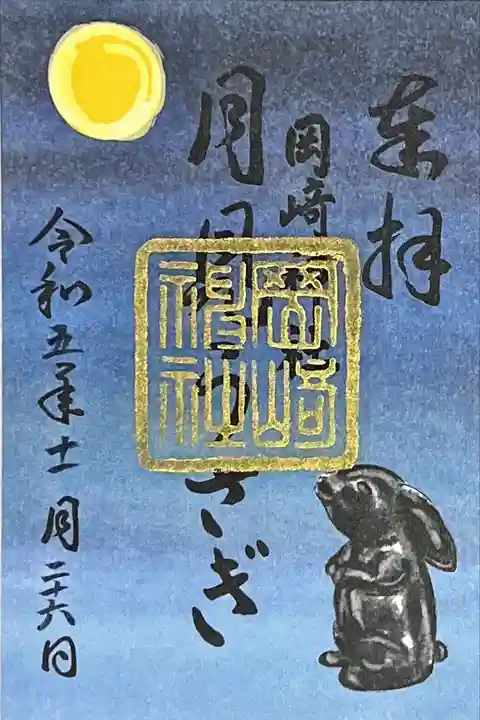 奉拝
岡崎神社
月見うさぎ
岡崎神社
令和五年十一月二十六日